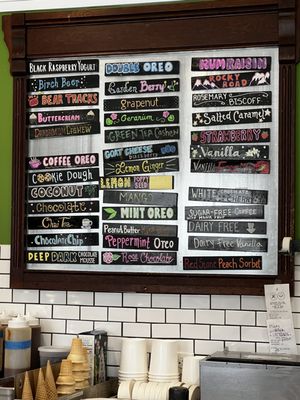 BLACK RASPBERRY YOGURT
Birch Beer
BEAR TRACKS
BUTTERCREAM
COFFEE OREO
Cookie Dough
COCONUT
CHOCOLATE
Chai Tea
Chocolate Chip
DEEP DARK CHOCOLATE MOUSSE
DOUBLE OREO
Garden Berry
Grapenut
Geranium
GREEN TEA
GOAT CHEESE
Lemon Ginger
LEMON
MANGO
MINT OREO
Peanut Butter
Peppermint OREO
Rose Chocolate
RUM RAISIN
ROCKY ROAD
ROSEMARY
BISCOFF
Salted Caramel
STRAWBERRY
Vanilla
WHITE CHOCOLATE
SUGAR-FREE COFFEE
DAIRY FREE
Dairy Free Vanilla
Peach Sorbet